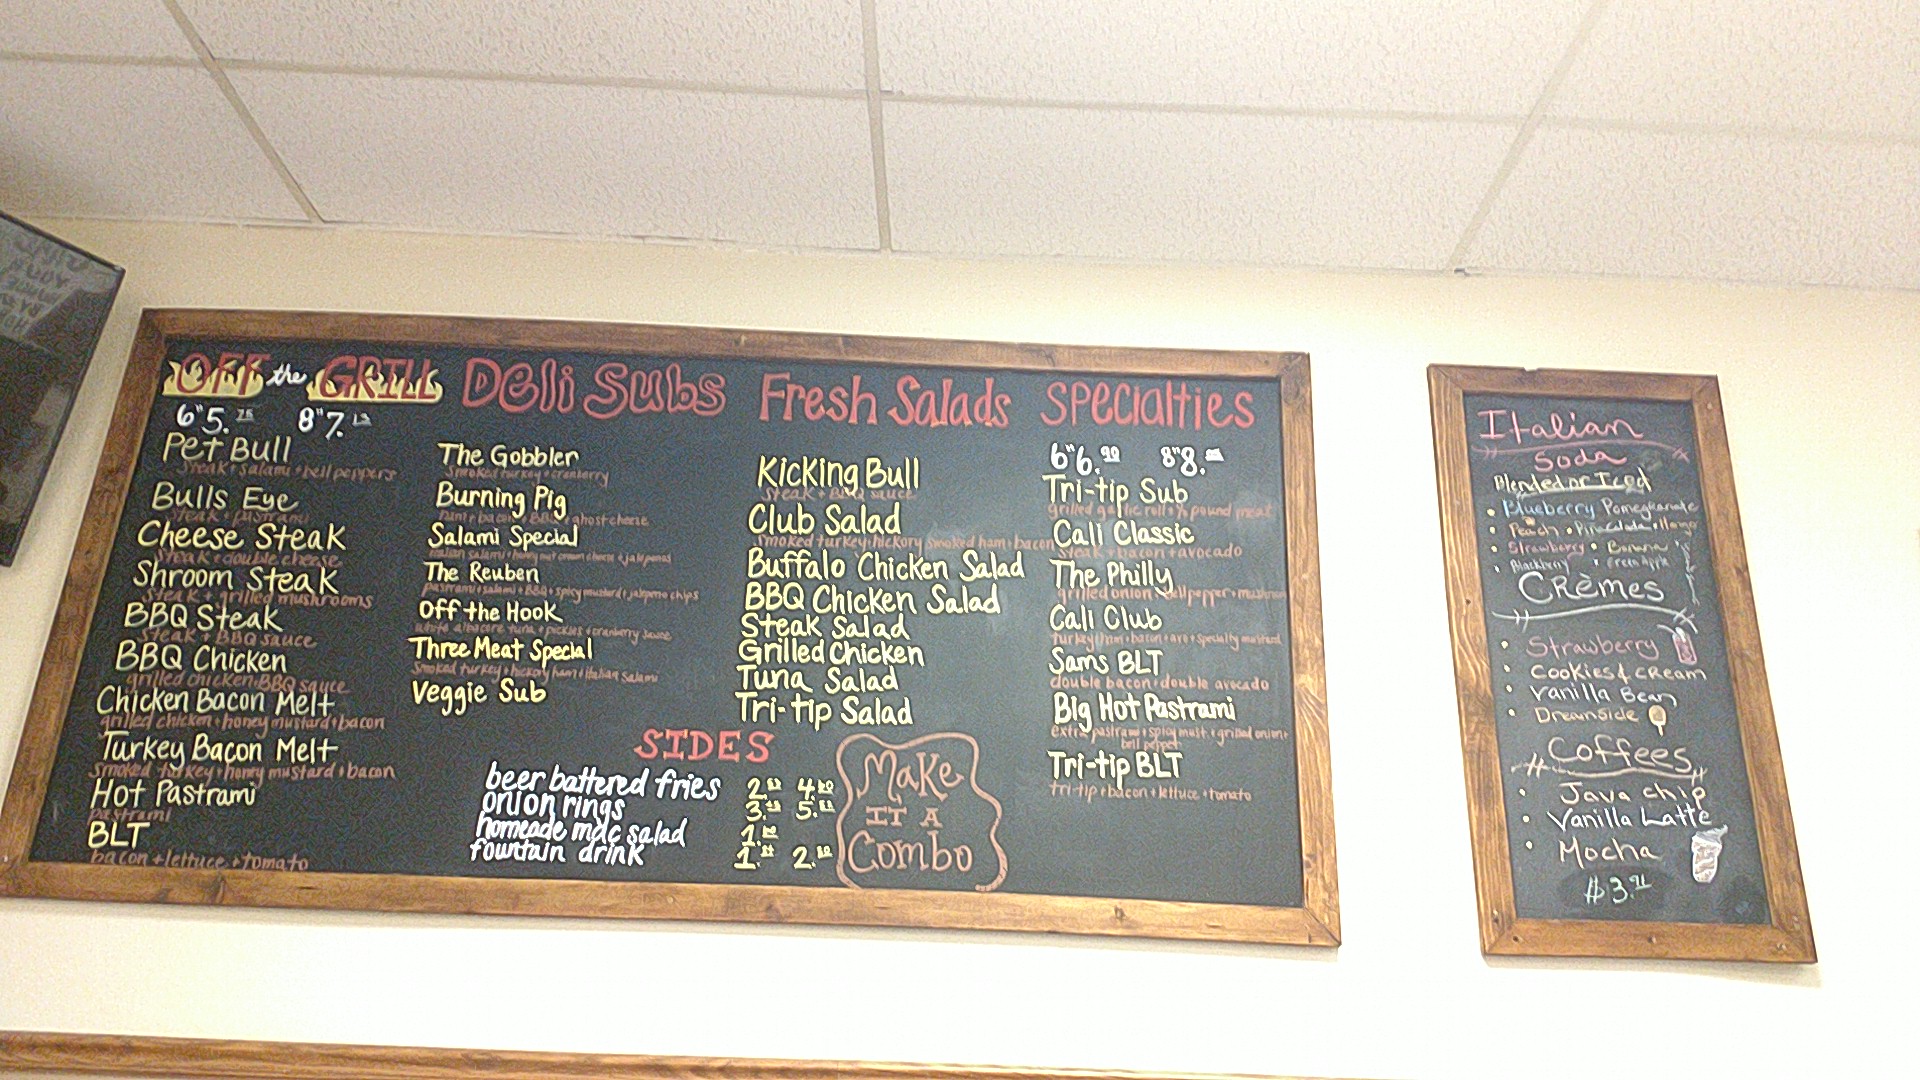 OFF the GRILL
6" 5. 8" 7.
Pet Bull
steak + salami + bell peppers
Bulls Eye
steak + pastrami
Cheese Steak
steak + double cheese
Shroom Steak
steak + grilled mushrooms
BBQ Steak
steak + BBQ sauce
BBQ Chicken
grilled chicken + BBQ sauce
Chicken Bacon Melt
grilled chicken + honey mustard + bacon
Turkey Bacon Melt
smoked turkey + honey mustard + bacon
Hot Pastrami
pastrami
BLT
bacon + lettuce + tomato
Deli Subs
The Gobbler
smoked turkey + cranberry
Burning Pig
bacon + BBQ + ghost cheese
Salami Special
italian salami + cream cheese + jalapeno
The Reuben
pastrami + salami + BBQ + spicy mustard + jalapeno chips
Off the Hook
white albacore tuna + pickles + cranberry sauce
Three Meat Special
Smoked turkey + hickory ham + italian salami
Veggie Sub
Fresh Salads
Kicking Bull
steak + BBQ sauce
Club Salad
smoked turkey + hickory smoked ham + bacon
Buffalo Chicken Salad
BBQ Chicken Salad
Steak Salad
Grilled Chicken
Tuna Salad
Tri-tip Salad
Specialties
6" 6. 8" 8.
Tri-tip Sub
grilled garlic roll + pound meat
Cali Classic
steak + bacon + avocado
The Philly
grilled onion + bell pepper + mushroom
Cali Club
turkey + ham + bacon + avo + specialty mustard
Sams BLT
double bacon + double avocado
Big Hot Pastrami
extra pastrami + spicy must. + grilled onion +
bell pepper
Tri-tip BLT
tri-tip + bacon + lettuce + tomato
SIDES
beer battered fries 2. 4.
onion rings 3. 5.
homeade mac salad 1.
fountain drink 1. 2.
Make
IT A
Combo
Italian
Soda
Blended or Iced
Blueberry Pomegranate
Peach • Pina Colada • Mango
Strawberry • Banana
Blackberry • Green Apple
Crèmes
Strawberry
Cookies & cream
Vanilla Bean
Dreamside
Coffees
Java chip
Vanilla Latte
Mocha
$3.